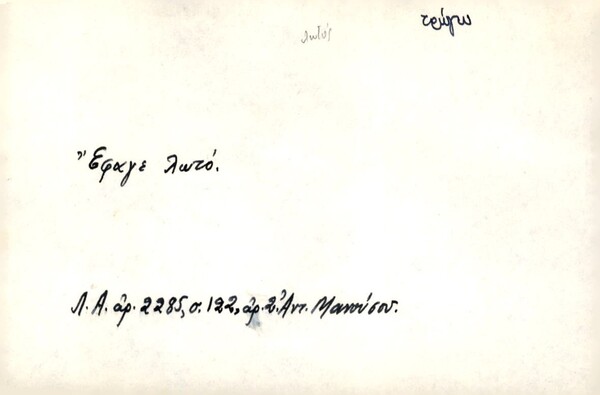 λωτός
τρώγω
Ἔφαγε λωτό.
Λ.Α. ἀρ. 2285, σ. 122, ἀρ. 2. Ἀντ. Μανούσου.